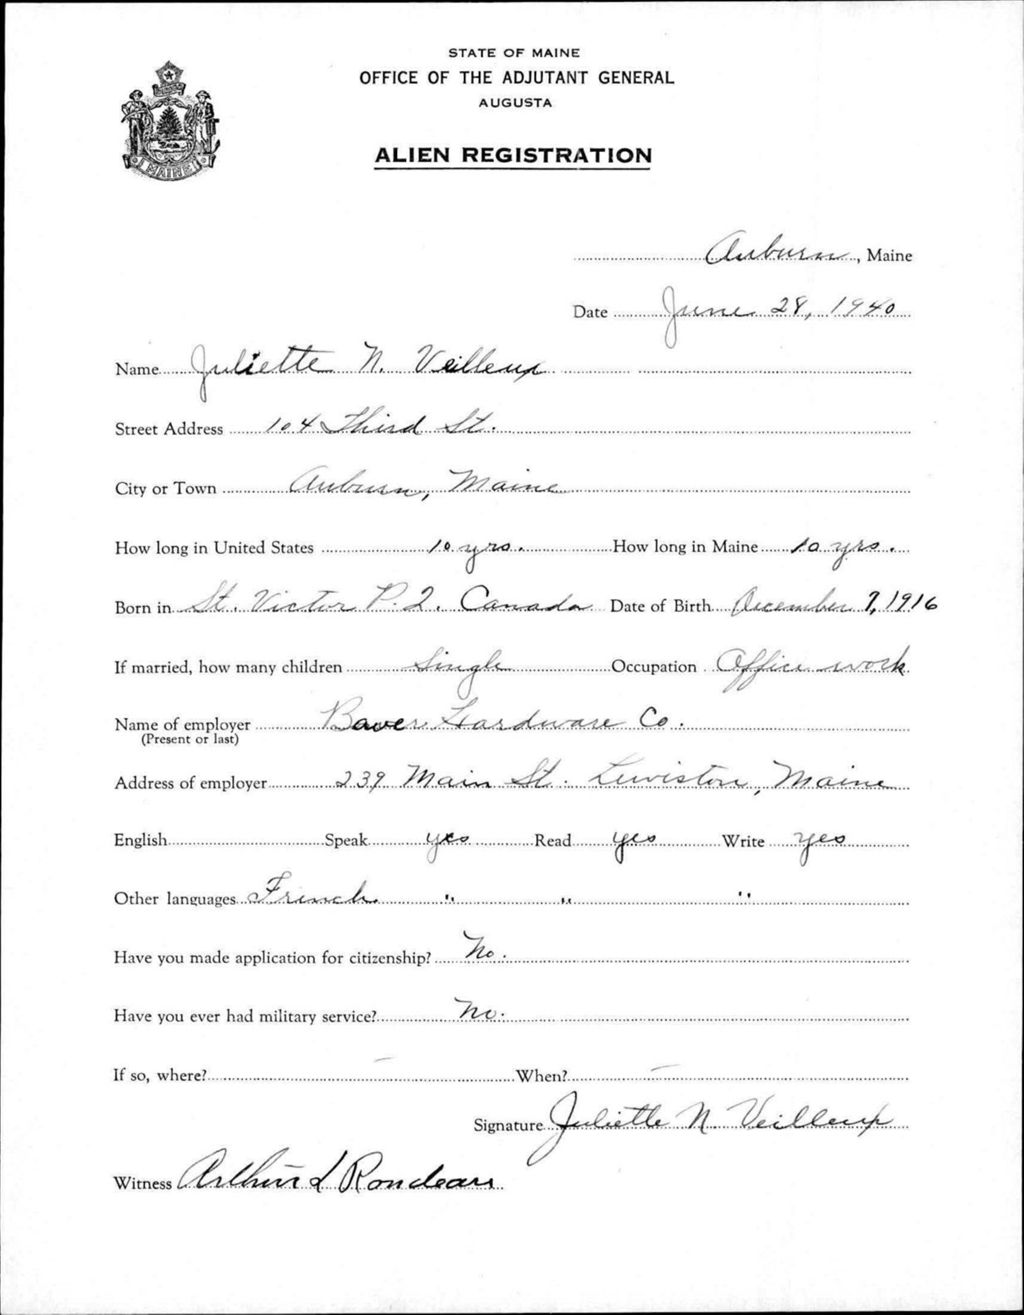 STATE OF MAINE
OFFICE OF THE ADJUTANT GENERAL
AUGUSTA
ALIEN REGISTRATION
MAINE
Auburn, Maine
Date June 28, 1940
Name Juliette N. Veilleux
Street Address 104 Third St.
City or Town Auburn, Maine
How long in United States 10 yrs. How long in Maine 10 yrs.
Born in St. Victor P.Q. Canada Date of Birth December 7, 1916
If married, how many children Single Occupation Office work
Name of employer Bauer Hardware Co.
(Present or last)
Address of employer 239 Main St. Lewiston, Maine
English Speak yes Read yes Write yes
Other languages French " " "
Have you made application for citizenship? No.
Have you ever had military service? No.
If so, where? — When? —
Signature Juliette N. Veilleux
Witness Arthur L Rondeau